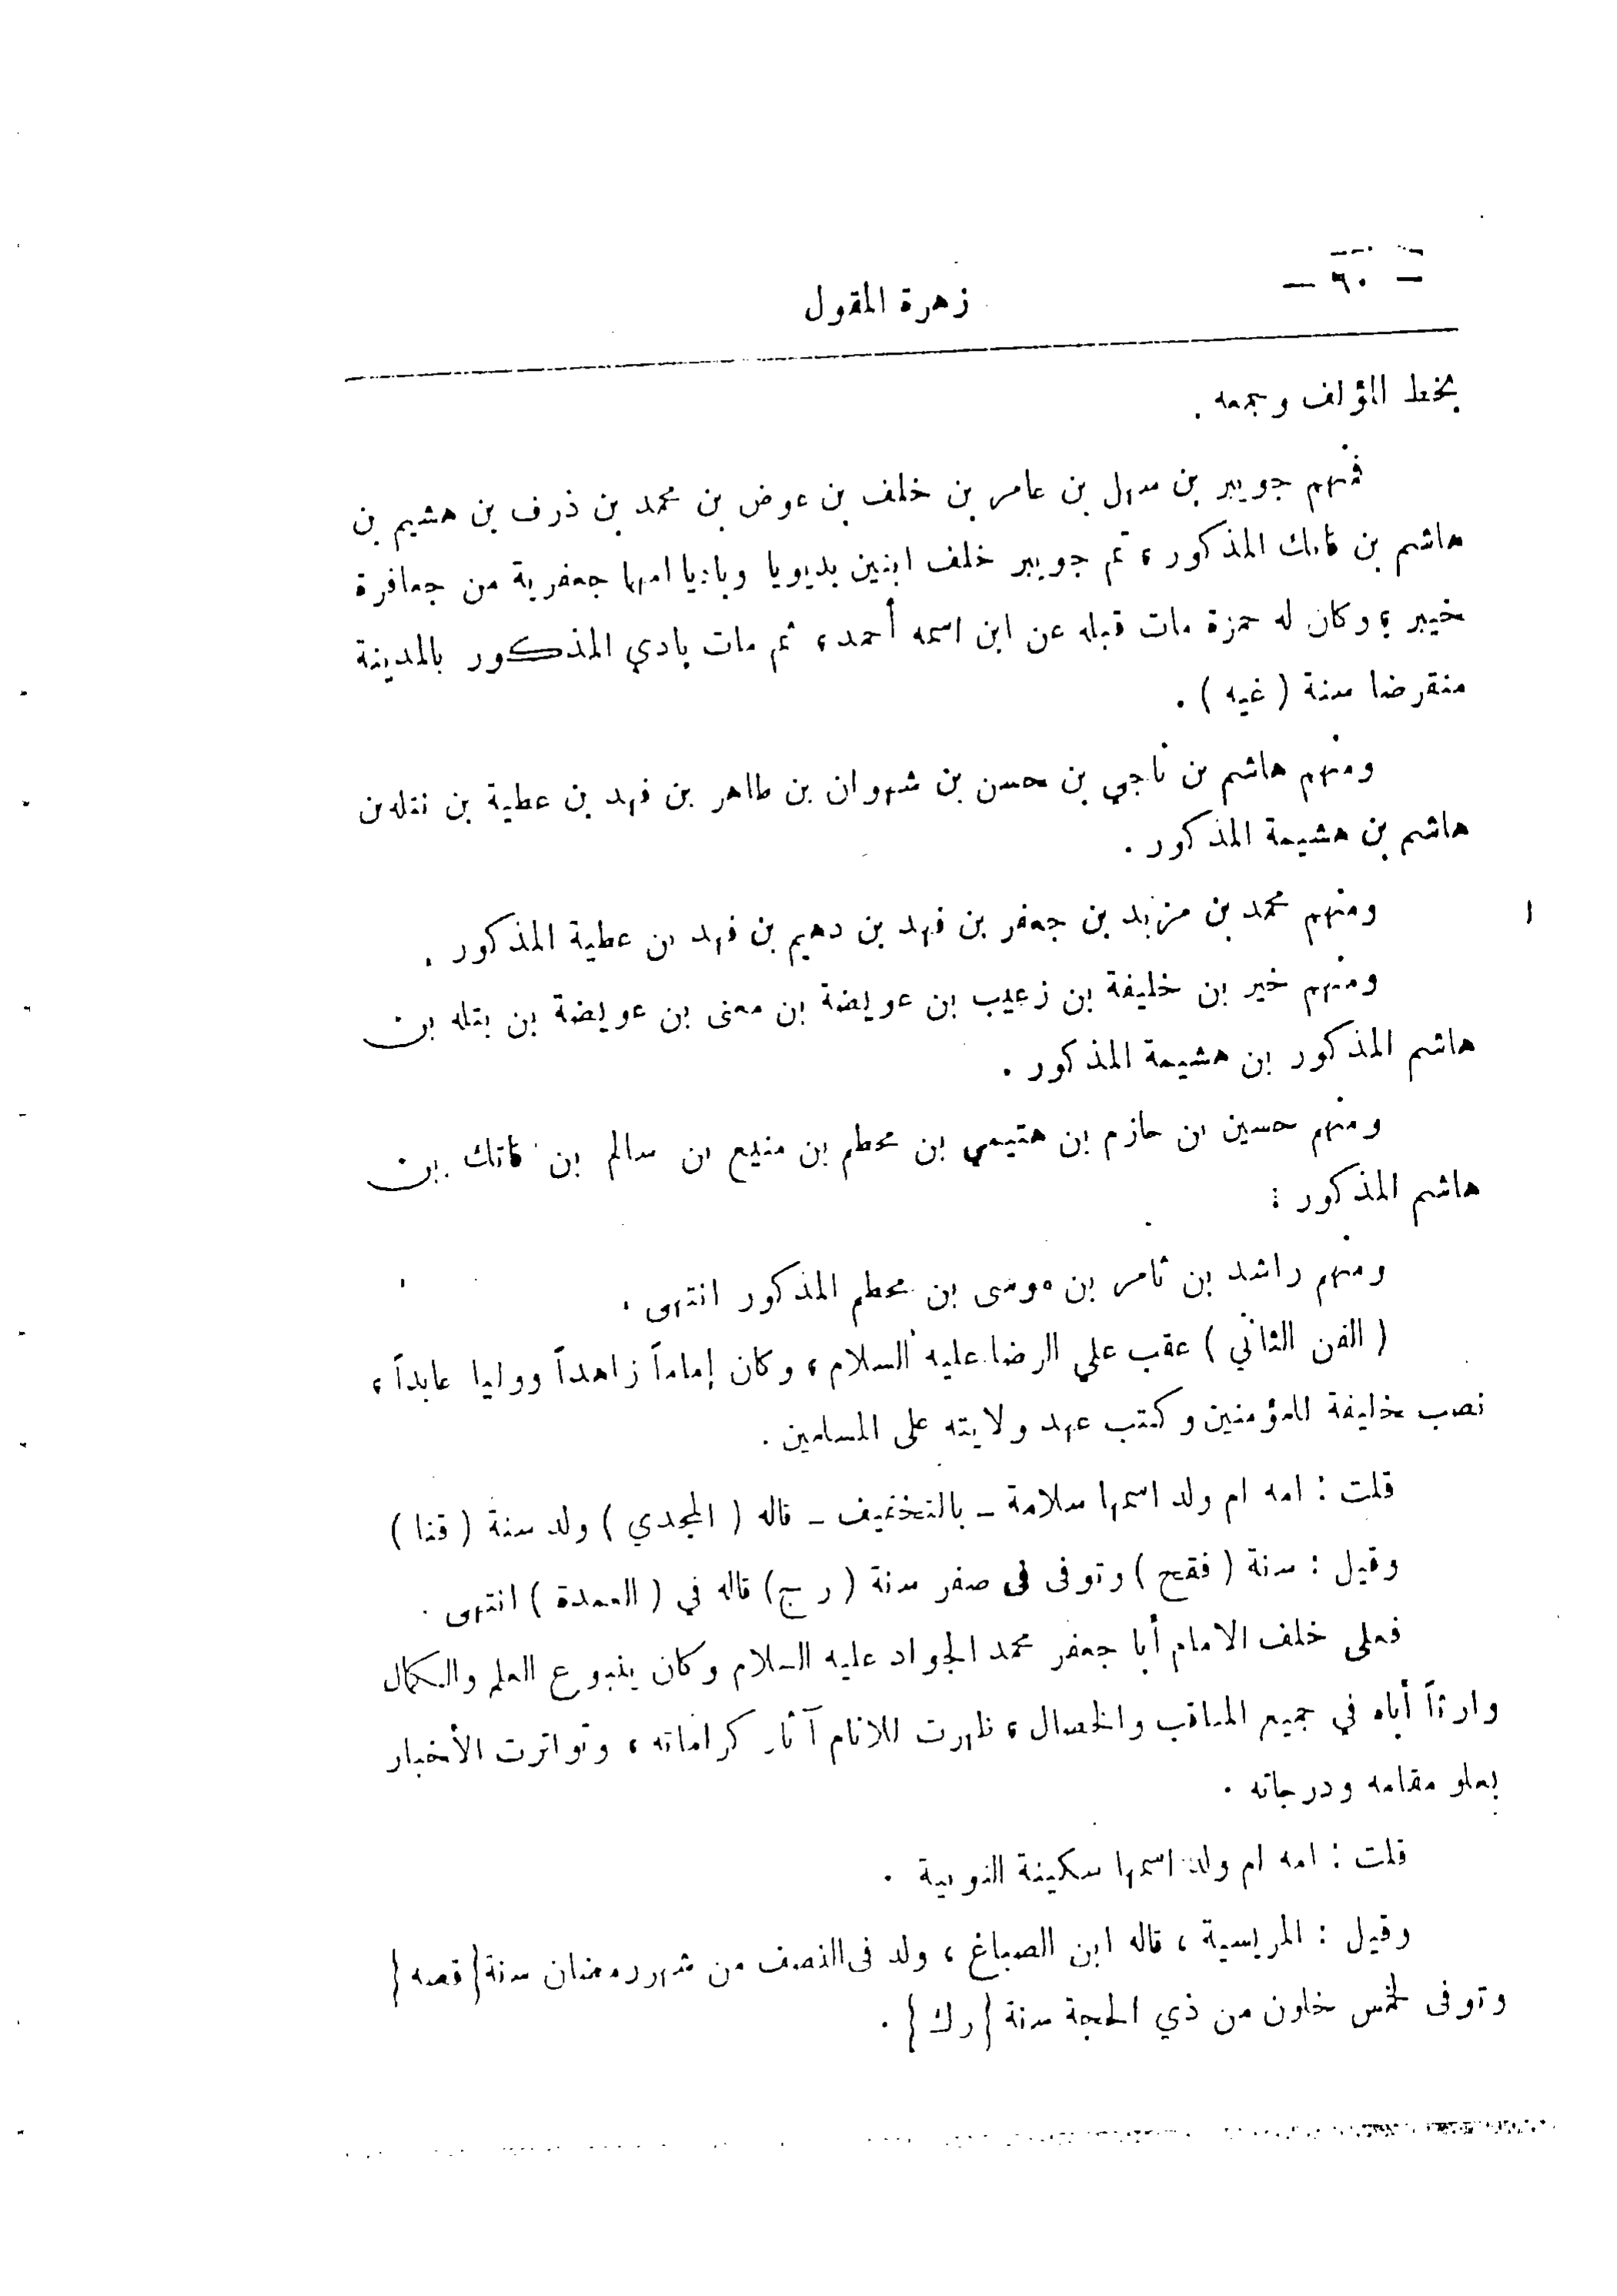 — ٦٠ —
زهرة المقول
بخط المؤلف وجمعه .
فمنهم جويبر بن سهل بن عامر بن خلف بن عوض بن محمد بن ذرف بن هشيم بن
هاشم بن فاتك المذكور ، ثم جويبر خلف ابنين بديويا وباديا امهما جعفرية من جعافرة
خيبر ؛ وكان له حمزة مات قبله عن ابن اسمه أحمد ، ثم مات بادي المذكور بالمدينة
منقرضا سنة ( غيه ) .
ومنهم هاشم بن ناجي بن حسن بن شهوان بن طاهر بن فهد بن عطية بن نتله بن
هاشم بن هشيمة المذكور .
ومنهم محمد بن مزيد بن جعفر بن فهد بن دهيم بن فهد بن عطية المذكور .
ومنهم خير بن خليفة بن زعيب بن عويضة بن معنى بن عويضة بن بتله بن
هاشم المذكور بن هشيمة المذكور .
ومنهم حسين بن حازم بن هتيمي بن محطم بن منيع بن سالم بن فاتك بن
هاشم المذكور :
ومنهم راشد بن ثامر بن موسى بن محطم المذكور انتهى .
( الفن الثاني ) عقب علي الرضا عليه السلام ، وكان إماماً زاهداً ووليا عابداً ،
نصب خليفة للمؤمنين وكتب عهد ولايته على المسلمين .
قلت : امه ام ولد اسمها سلامة – بالتخفيف – قاله ( المجدي ) ولد سنة ( قنا )
وقيل : سنة ( فقح ) وتوفى في صفر سنة ( رج ) قاله في ( العمدة ) انتهى .
فعلي خلف الامام أبا جعفر محمد الجواد عليه السلام وكان ينبوع العلم والكمال
وارثاً أباه في جميع المناقب والخصال ، ظهرت للانام آثار كراماته ، وتواترت الأخبار
بعلو مقامه ودرجاته .
قلت : امه ام ولد اسمها سكينة النوبية .
وقيل : المريسية ، قاله ابن الصباغ ، ولد في النصف من شهر رمضان سنة { قصه }
وتوفى لخمس خلون من ذي الحجة سنة { رك } .